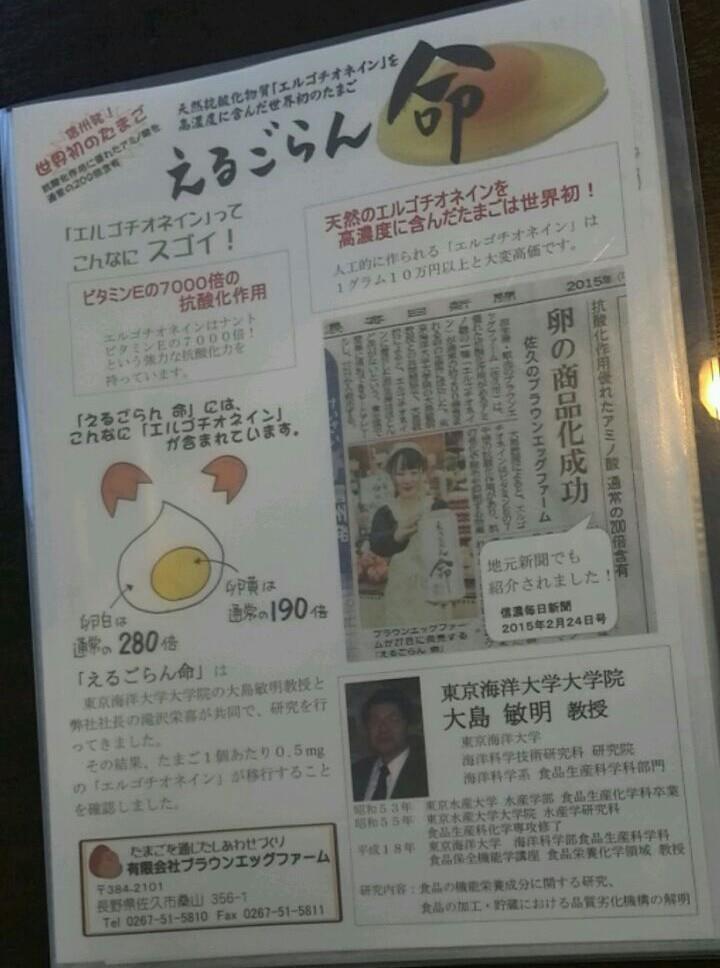 信州発！
世界初のたまご
抗酸化作用に優れたアミノ酸を
通常の200倍含有
天然抗酸化物質「エルゴチオネイン」を
高濃度に含んだ世界初のたまご
えるごらん 命
「エルゴチオネイン」って
こんなに スゴイ！
ビタミンEの7000倍の
抗酸化作用
エルゴチオネインはナント
ビタミンEの7000倍！
という強力な抗酸化力を
持っています。
天然のエルゴチオネインを
高濃度に含んだたまごは世界初！
人工的に作られる「エルゴチオネイン」は
1グラム10万円以上と大変高価です。
2015年
抗酸化作用優れたアミノ酸 通常の200倍含有
卵の商品化成功
佐久のブラウンエッグファーム
えるごらん 命
ブラウンエッグファー
ムが27日に発売する
「えるごらん 命」
地元新聞でも
紹介されました！
信濃毎日新聞
2015年2月24日号
「えるごらん 命」には、
こんなに「エルゴチオネイン」
が含まれています。
卵白は
通常の 280倍
卵黄は
通常の190倍
「えるごらん命」は
東京海洋大学大学院の大島敏明教授と
弊社社長の滝沢栄喜が共同で、研究を行
ってきました。
その結果、たまご1個あたり0.5mg
の「エルゴチオネイン」が移行すること
を確認しました。
たまごを通じたしあわせづくり
有限会社ブラウンエッグファーム
〒384-2101
長野県佐久市桑山 356-1
Tel 0267-51-5810 Fax 0267-51-5811
東京海洋大学大学院
大島 敏明 教授
東京海洋大学
海洋科学技術研究科 研究院
海洋科学系 食品生産科学科部門
昭和53年 東京水産大学 水産学部 食品生産化学科卒業
昭和55年 東京水産大学大学院 水産学研究科
食品生産科化学専攻修了
平成18年 東京海洋大学 海洋科学部食品生産科学科
食品保全機能学講座 食品栄養化学領域 教授
研究内容：食品の機能栄養成分に関する研究、
食品の加工・貯蔵における品質劣化機構の解明